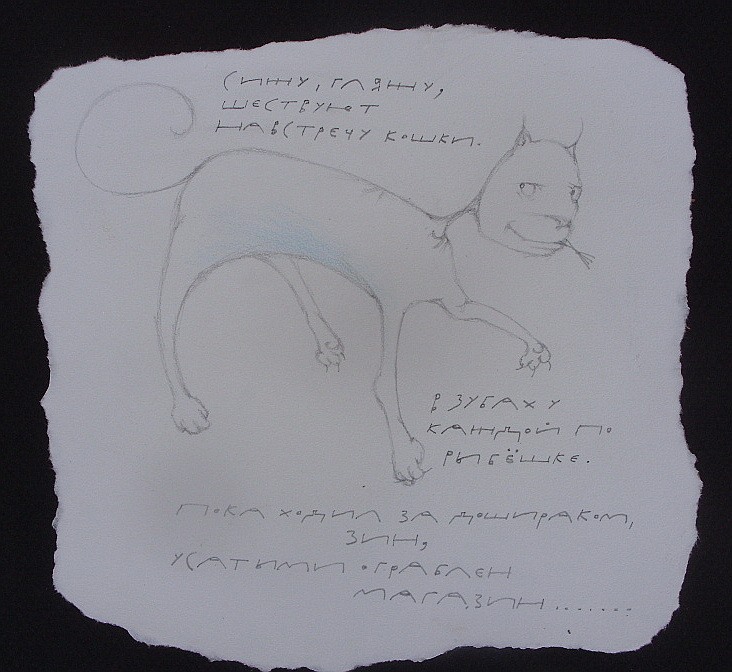 СИЖУ, ГЛЯЖУ,
ШЕСТВУЮТ
НАВСТРЕЧУ КОШКИ.
В ЗУБАХ У
КАЖДОЙ ПО
РЫБЁШКЕ.
ПОКА ХОДИЛ ЗА ДОШИРАКОМ,
ЗИН,
УСАТЫМИ ОГРАБЛЕН
МАГАЗИН.......